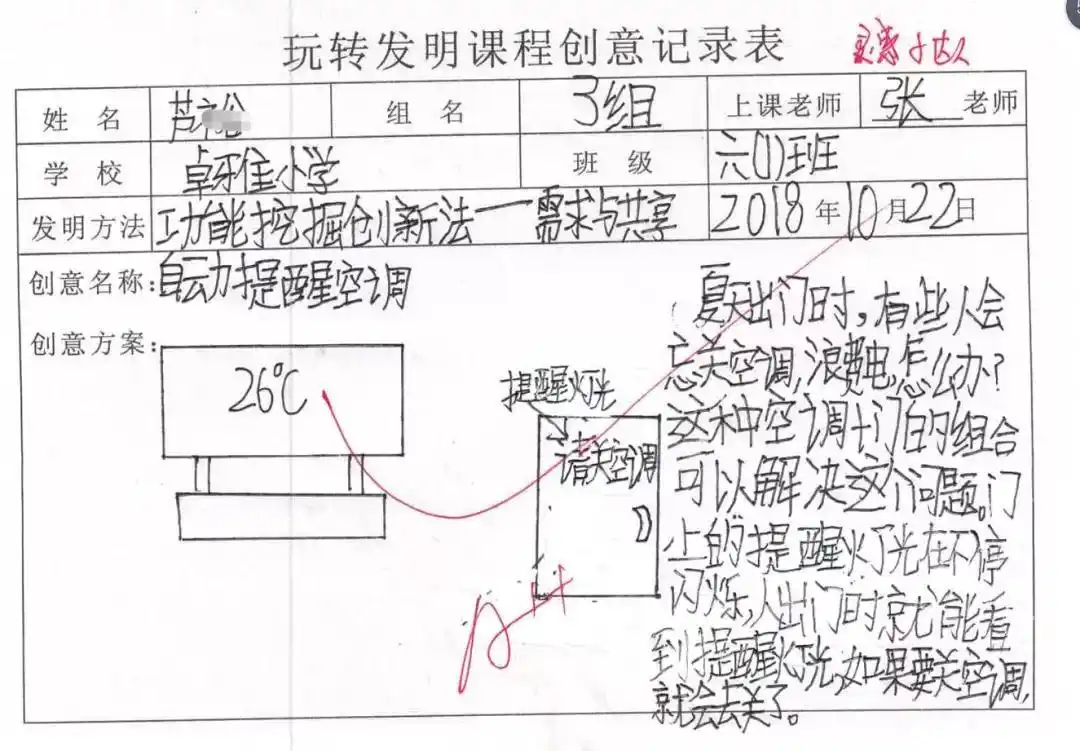 玩转发明课程创意记录表
小达人
姓 名 芦 组 名 3组 上课老师 张 老师
学 校 卓雅小学 班 级 六(1)班
发明方法 功能挖掘创新法——需求与共享 2018年10月22日
创意名称:自动提醒空调
创意方案:
26℃
提醒灯光
请关空调
A++
夏天出门时,有些人会
忘关空调,浪费电,怎么办?
这种空调+门的组合
可以解决这个问题。门
上的提醒灯光在不停
闪烁,人出门时就能看
到提醒灯光,如果要关空调,
就会去关了。